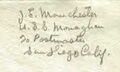 J. E. Manchester
U.S.S. Monaghan
℅ Postmaster
San Diego Calif.